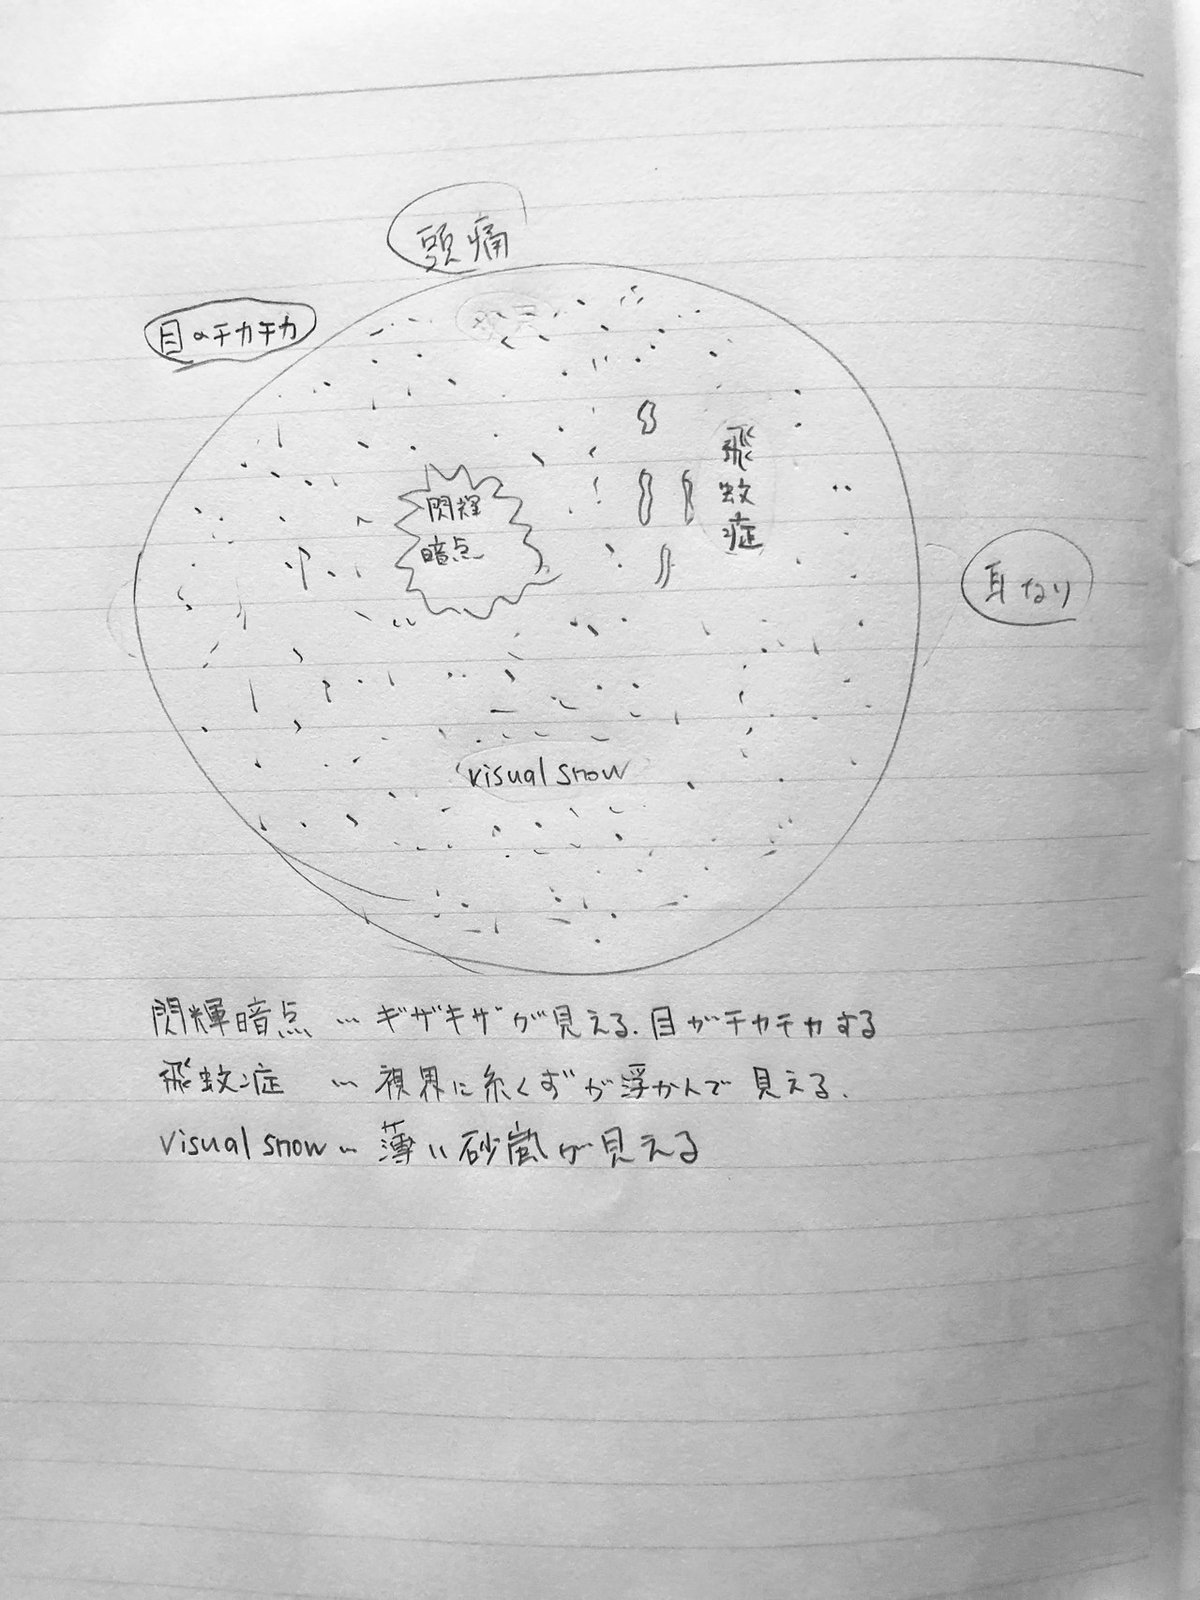 頭痛
目のチカチカ
飛蚊症
閃輝
暗点
耳なり
visual snow
閃輝暗点 … ギザギザが見える. 目がチカチカする
飛蚊症 … 視界に糸くずが浮かんで見える.
visual snow … 薄い砂嵐が見える